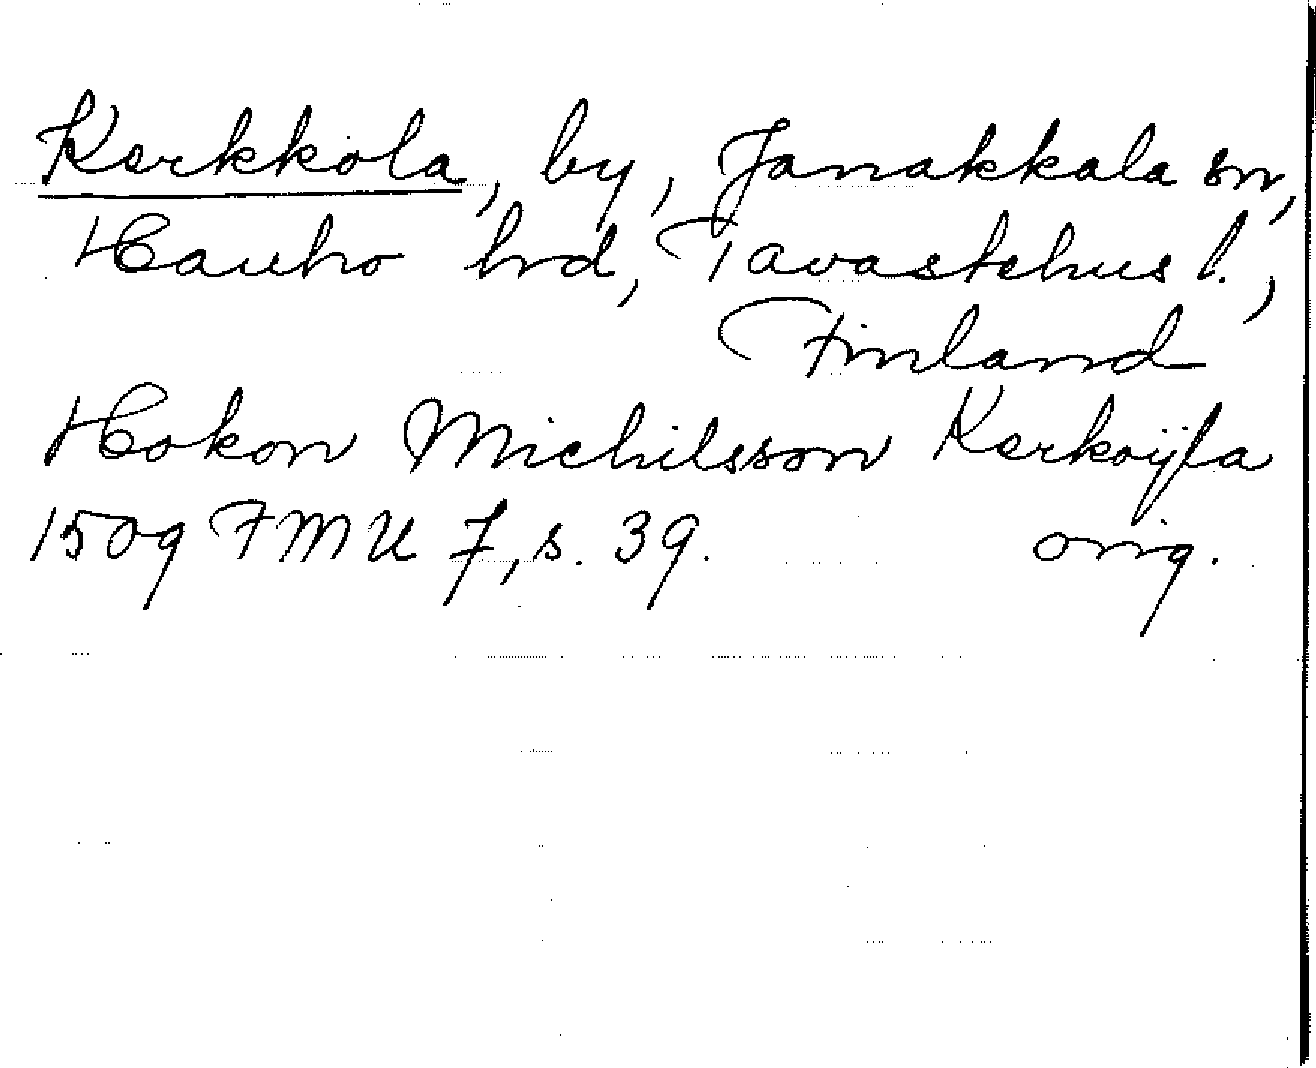 Kerkkola, by, Janakkala sn,
Hauho hrd, Tavastehus l.,
Finland
Hokon Michilsson Kerkoijla
1509 FMU 7, s. 39. orig.